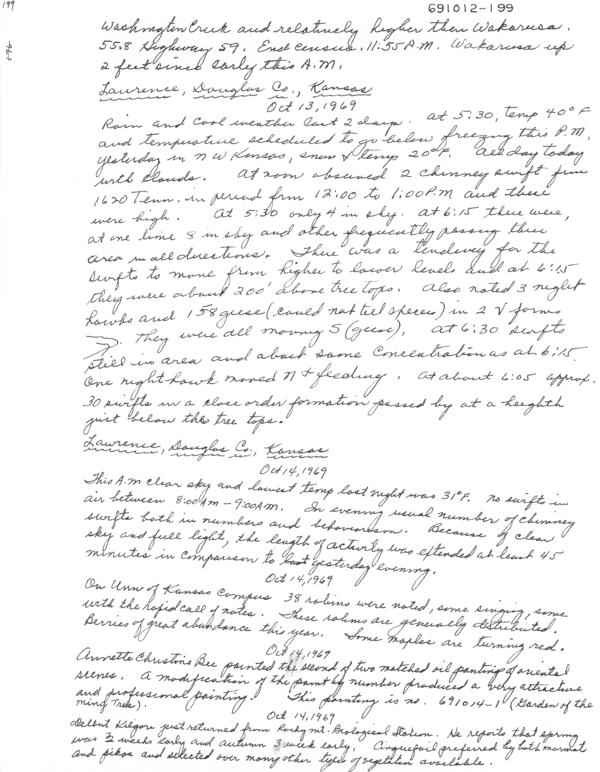 199
691012-199
196
Washington Creek and relatively higher then Wakarusa.
55.8 Highway 59. End census. 11:55 A.M. Wakarusa up
2 feet since early this A.M.
Lawrence, Douglas Co., Kansas
Oct 13, 1969
Rain and cool weather last 2 days. at 5:30, temp 40°F
and temperature scheduled to go below freezing this P.M.
yesterday in NW Kansas, snow & temp 20°F. All day today
with clouds. At noon observed 2 chimney swift from
1620 Tenn. in period from 12:00 to 1:00 P.M and these
were high. At 5:30 only 4 in sky. at 6:15 there were,
at one time 8 in sky and other frequently passing thru
area in all directions. There was a tendency for the
swifts to move from higher to lower levels and at 6:15
they were about 200' above tree tops. Also noted 3 night
hawks and 158 geese (could not tell species) in 2 V forms
They were all moving S (geese). At 6:30 swifts
still in area and about same concentration as at 6:15.
One night hawk moved N & feeding. At about 6:05 approx.
30 swifts in a close order formation passed by at a heighth
just below the tree tops.
Lawrence, Douglas Co., Kansas
Oct 14, 1969
This A.M clear sky and lowest temp last night was 31°F. No swifts in
air between 8:00 AM - 9:00 AM. In evening usual number of chimney
swifts both in numbers and behaviorism. Because of clear
sky and full light, the length of activity was extended at least 45
minutes in comparison to yesterday evening.
Oct 14, 1969
On Univ of Kansas Campus 38 robins were noted, some singing, some
with the rapid call of notes. These robins are generally distributed.
Berries of great abundance this year. Some maples are turning red.
Oct 14, 1969
Annette Christine Bee painted the second of two matched oil painting of oriental
scenes. A modification of the paint by number produced a very attractive
and professional painting. This painting is no. 691014-1 (Garden of the
ming Tree).
Oct 14, 1969
Delbert Kilgore just returned from Rocky Mt. Biological Station. He reports that spring
was 2 weeks early and autumn 3 week early. Cinquefoil preferred by both marmot
and pikas and selected over many other types of vegetation available.